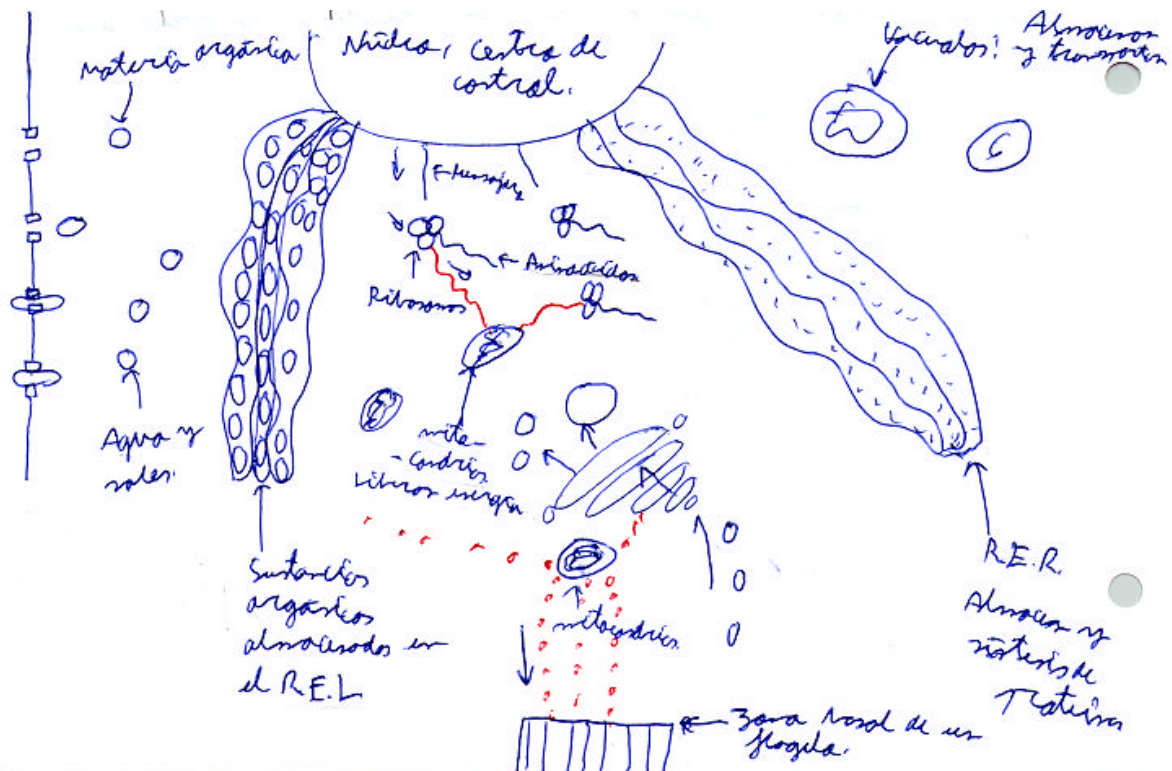 Materia orgánica
Núcleo, Centro de
control.
Vacuolas: Almacenan
y transportan
← Mensajero
← Aminoácidos
Ribosomas
Agua y
sales.
mito-
condrias
liberan energía
mitocondrias
Sustancias
orgánicas
almacenadas en
el R.E.L
R.E.R.
Almacen y
síntesis de
Proteínas
Zona basal de un
flagelo.